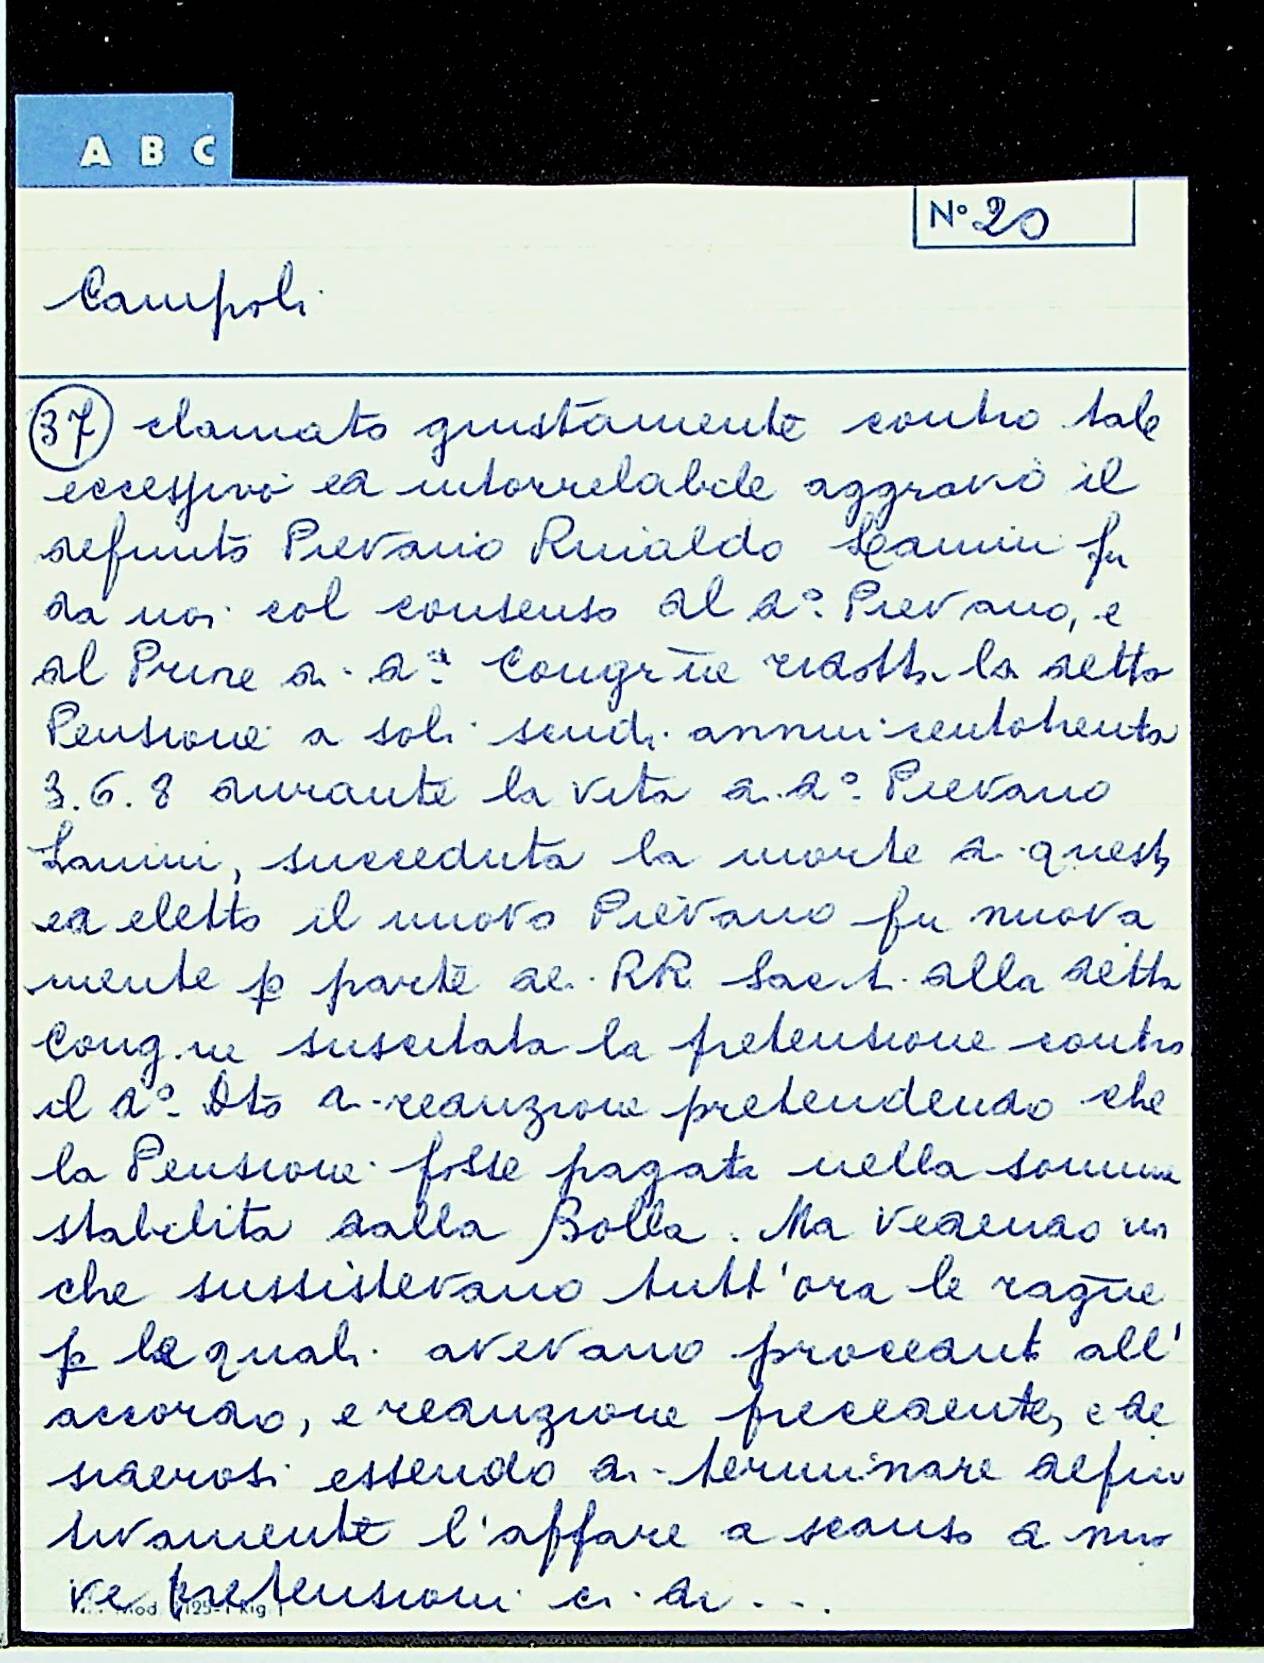 A B C
N° 20
Campoli
37 clamato giustamente contro tale
eccessivo ed intorrelabile aggravio il
defunto Pievano Rinialdo Lanini fu
da noi col consenso del d°. Pievano, e
del Priore di d.ª Congrne ridotta la detta
Pensione a soli scudi annui centotrenta
3.6.8 durante la vita di d°. Pievano
Lanini, succeduta la morte di questo
ed eletto il nuovo Pievano fu nuova
mente p parte dei RR Sacti. della detta
Cong.ne suscitata la pretensione contro
il d°. Dto di reduzione pretendendo che
la Pensione fosse pagata nella somma
stabilita dalla Bolla. Ma vedendo noi
che sussistevano tutt'ora le ragne
p le quali avevano proceduto all'
accordo, e reduzione precedente, e de
siderosi essendo di terminare defini
tivamente l'affare a scanso di nuo
ve pretensioni ci di ...